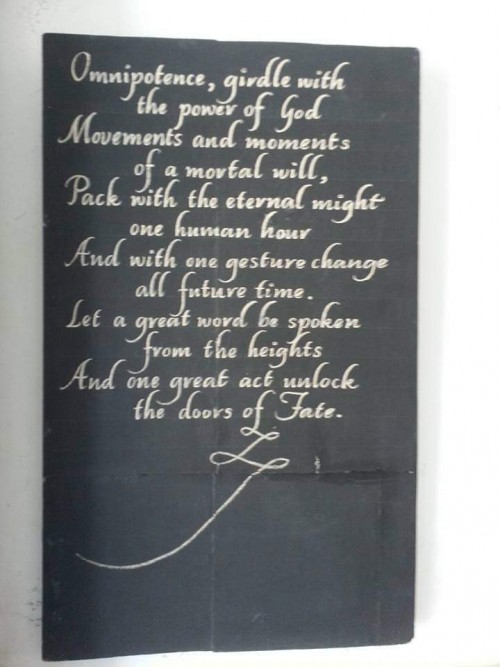 Omnipotence, girdle with
the power of God
Movements and moments
of a mortal will,
Pack with the eternal might
one human hour
And with one gesture change
all future time.
Let a great word be spoken
from the heights
And one great act unlock
the doors of Fate.